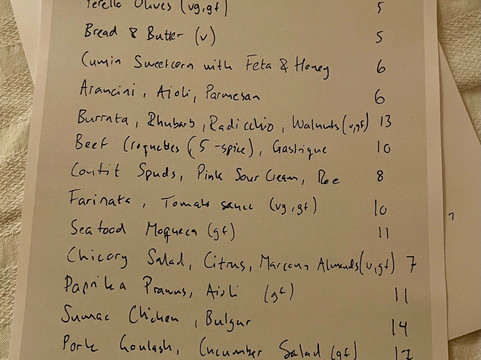 Perello Olives (vg,gf) 5
Bread & Butter (v) 5
Cumin Sweetcorn with Feta & Honey 6
Arancini, Aioli, Parmesan 6
Burrata, Rhubarb, Radicchio, Walnuts (v,gf) 13
Beef Croquettes (5-spice), Gastrique 10
Confit Spuds, Pink Sour Cream, Roe 8
Farinata, Tomato sauce (vg,gf) 10
Seafood Moqueca (gf) 11
Chicory Salad, Citrus, Marcona Almonds (v,gf) 7
Paprika Prawns, Aioli (gf) 11
Sumac Chicken, Bulgur 14
Pork Goulash, Cucumber Salad (gf)